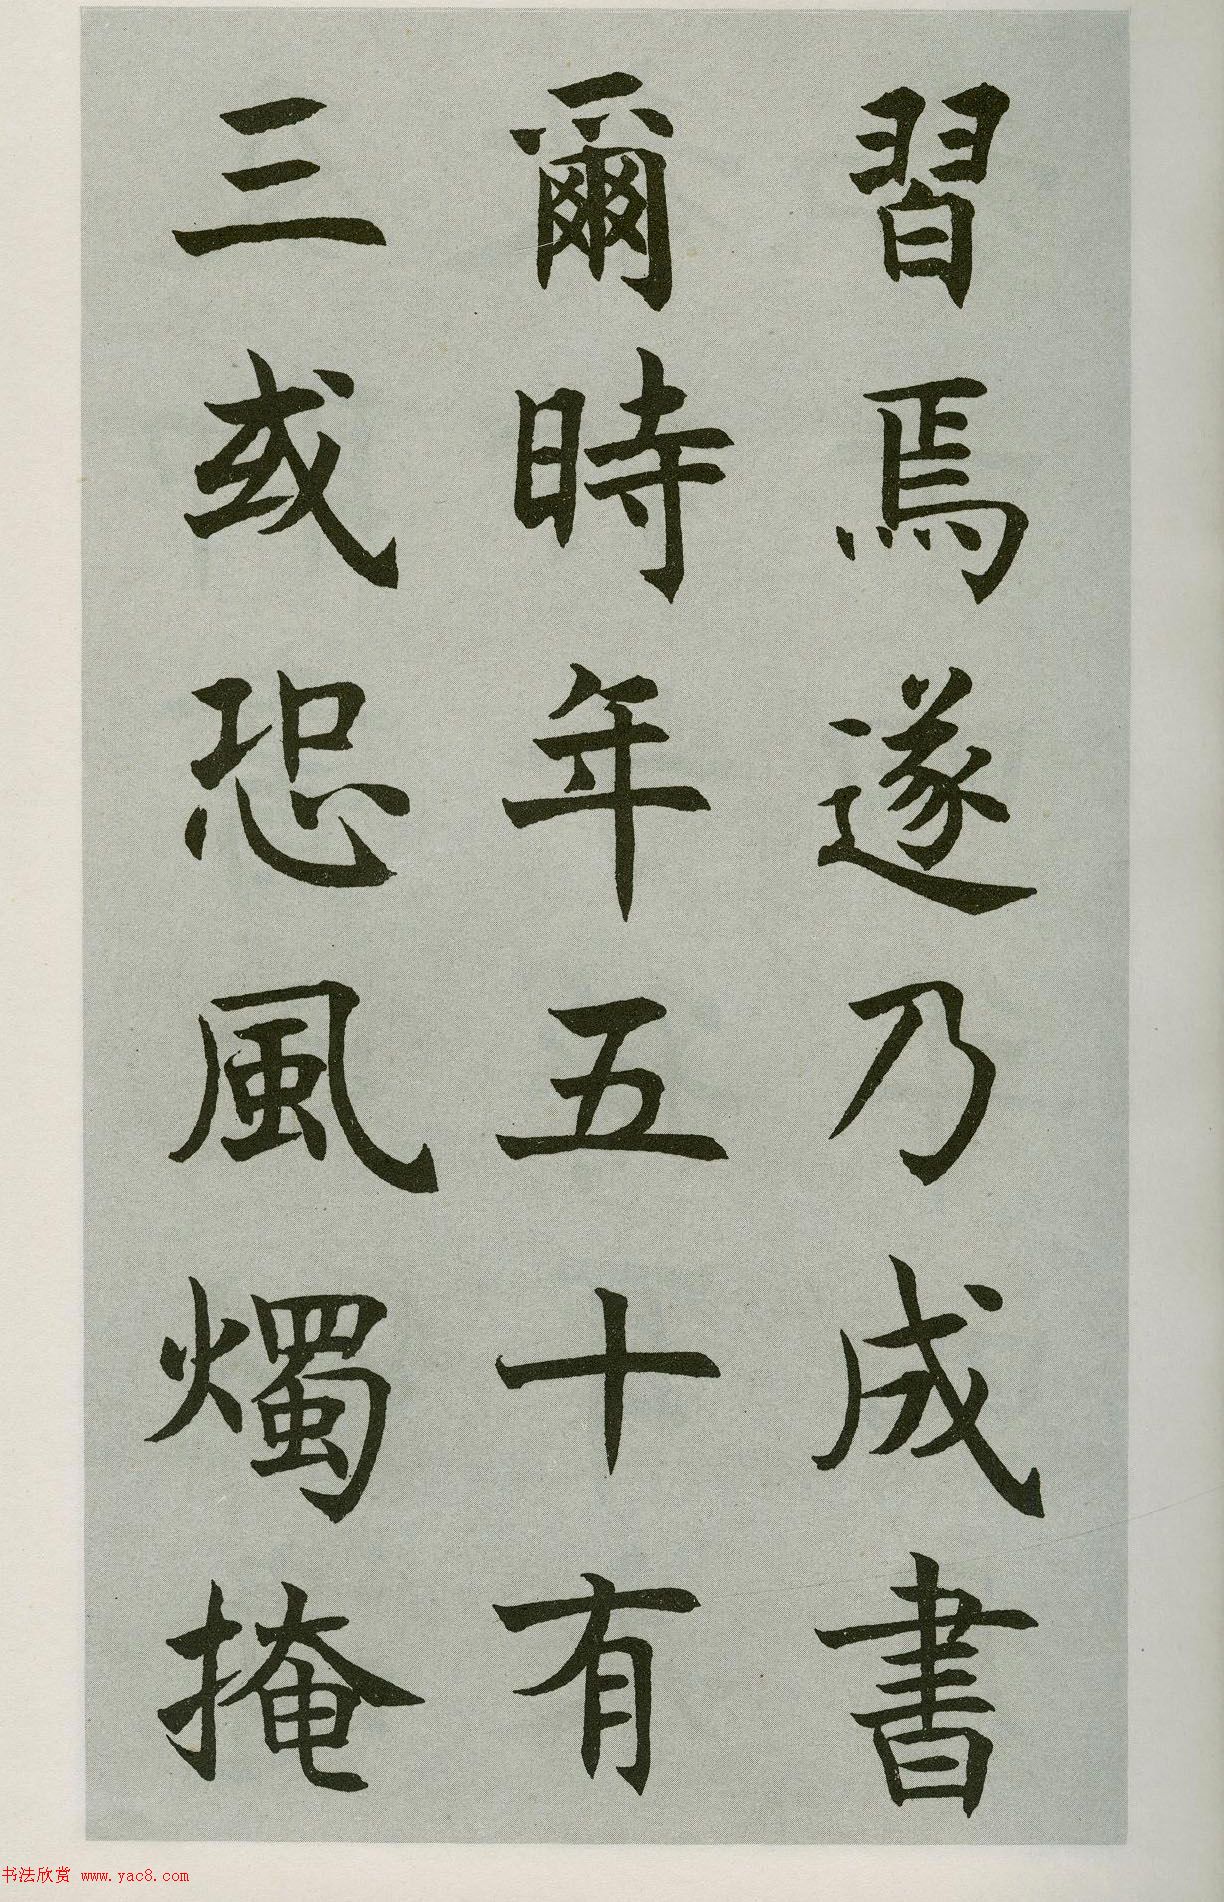 習焉遂乃成書
爾時年五十有
三或恐風燭掩
书法欣赏 www.yac8.com